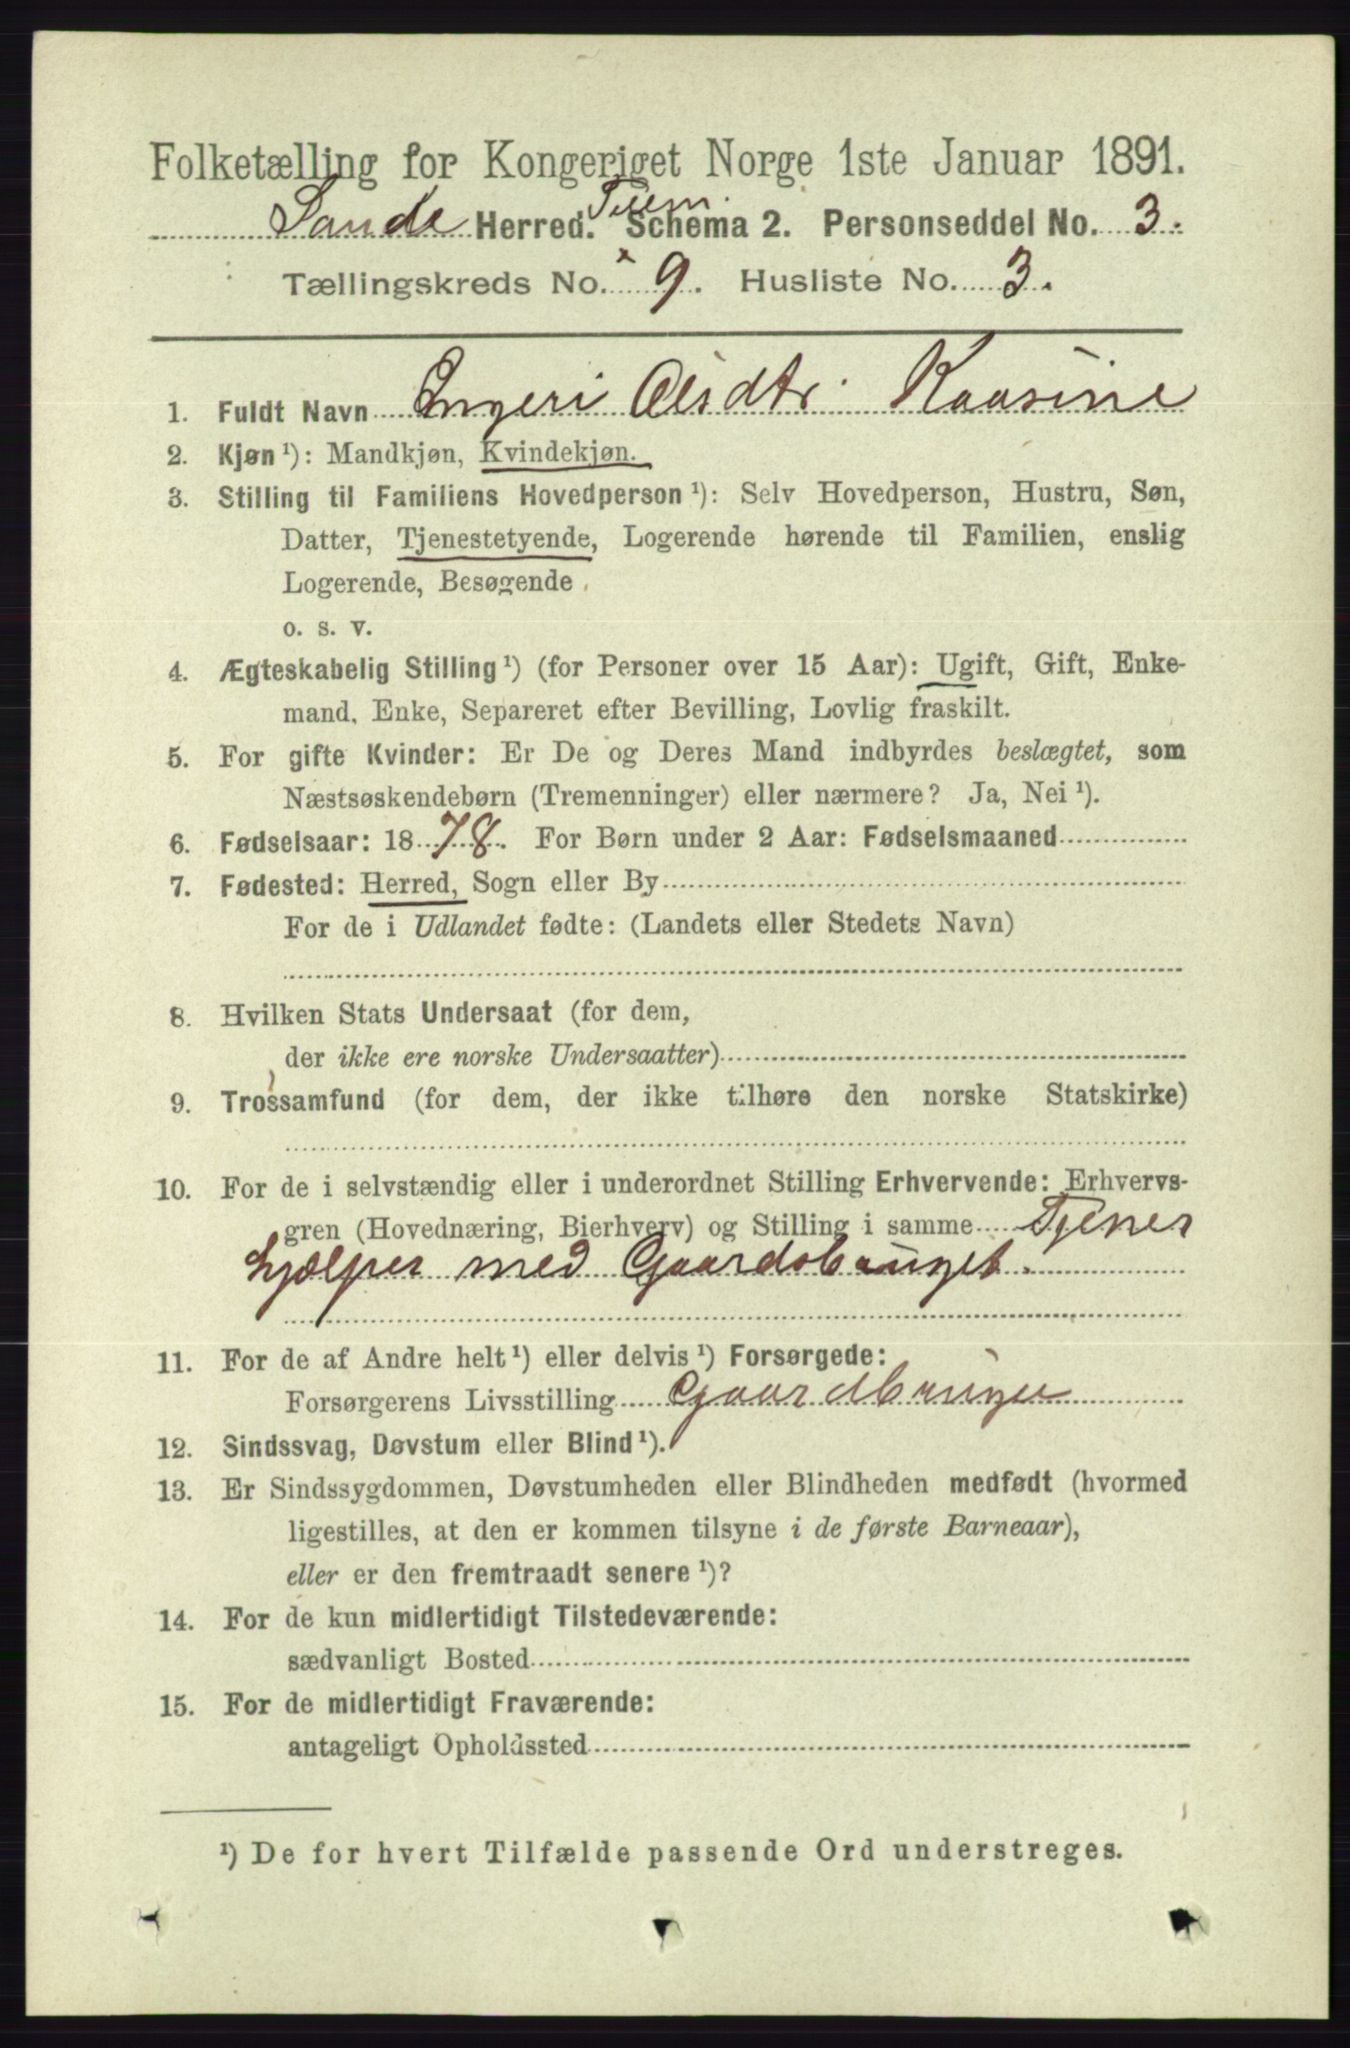 Folketælling for Kongeriget Norge 1ste Januar 1891.
Sande Herred. Schema 2. Personseddel No. 3.
Tællingskreds No. 9. Husliste No. 3.
1. Fuldt Navn Ingeri Olsdtr. Kaasine
2. Kjøn¹): Mandkjøn, Kvindekjøn.
3. Stilling til Familiens Hovedperson¹): Selv Hovedperson, Hustru, Søn,
Datter, Tjenestetyende, Logerende hørende til Familien, enslig
Logerende, Besøgende
o. s. v.
4. Ægteskabelig Stilling¹) (for Personer over 15 Aar): Ugift, Gift, Enke-
mand, Enke, Separeret efter Bevilling, Lovlig fraskilt.
5. For gifte Kvinder: Er De og Deres Mand indbyrdes beslægtet, som
Næstsøskendebørn (Tremenninger) eller nærmere? Ja, Nei¹).
6. Fødselsaar: 1878. For Børn under 2 Aar: Fødselsmaaned
7. Fødested: Herred, Sogn eller By
For de i Udlandet fødte: (Landets eller Stedets Navn)
8. Hvilken Stats Undersaat (for dem,
der ikke ere norske Undersaatter)
9. Trossamfund (for dem, der ikke tilhøre den norske Statskirke)
10. For de i selvstændig eller i underordnet Stilling Erhvervende: Erhvervs-
gren (Hovednæring, Bierhverv) og Stilling i samme Tjener
hjælper med Gaardsbruget.
11. For de af Andre helt¹) eller delvis¹) Forsørgede:
Forsørgerens Livsstilling Gaardbruger
12. Sindssvag, Døvstum eller Blind¹).
13. Er Sindssygdommen, Døvstumheden eller Blindheden medfødt (hvormed
ligestilles, at den er kommen tilsyne i de første Barneaar),
eller er den fremtraadt senere¹)?
14. For de kun midlertidigt Tilstedeværende:
sædvanligt Bosted
15. For de midlertidigt Fraværende:
antageligt Opholdssted
¹) De for hvert Tilfælde passende Ord understreges.